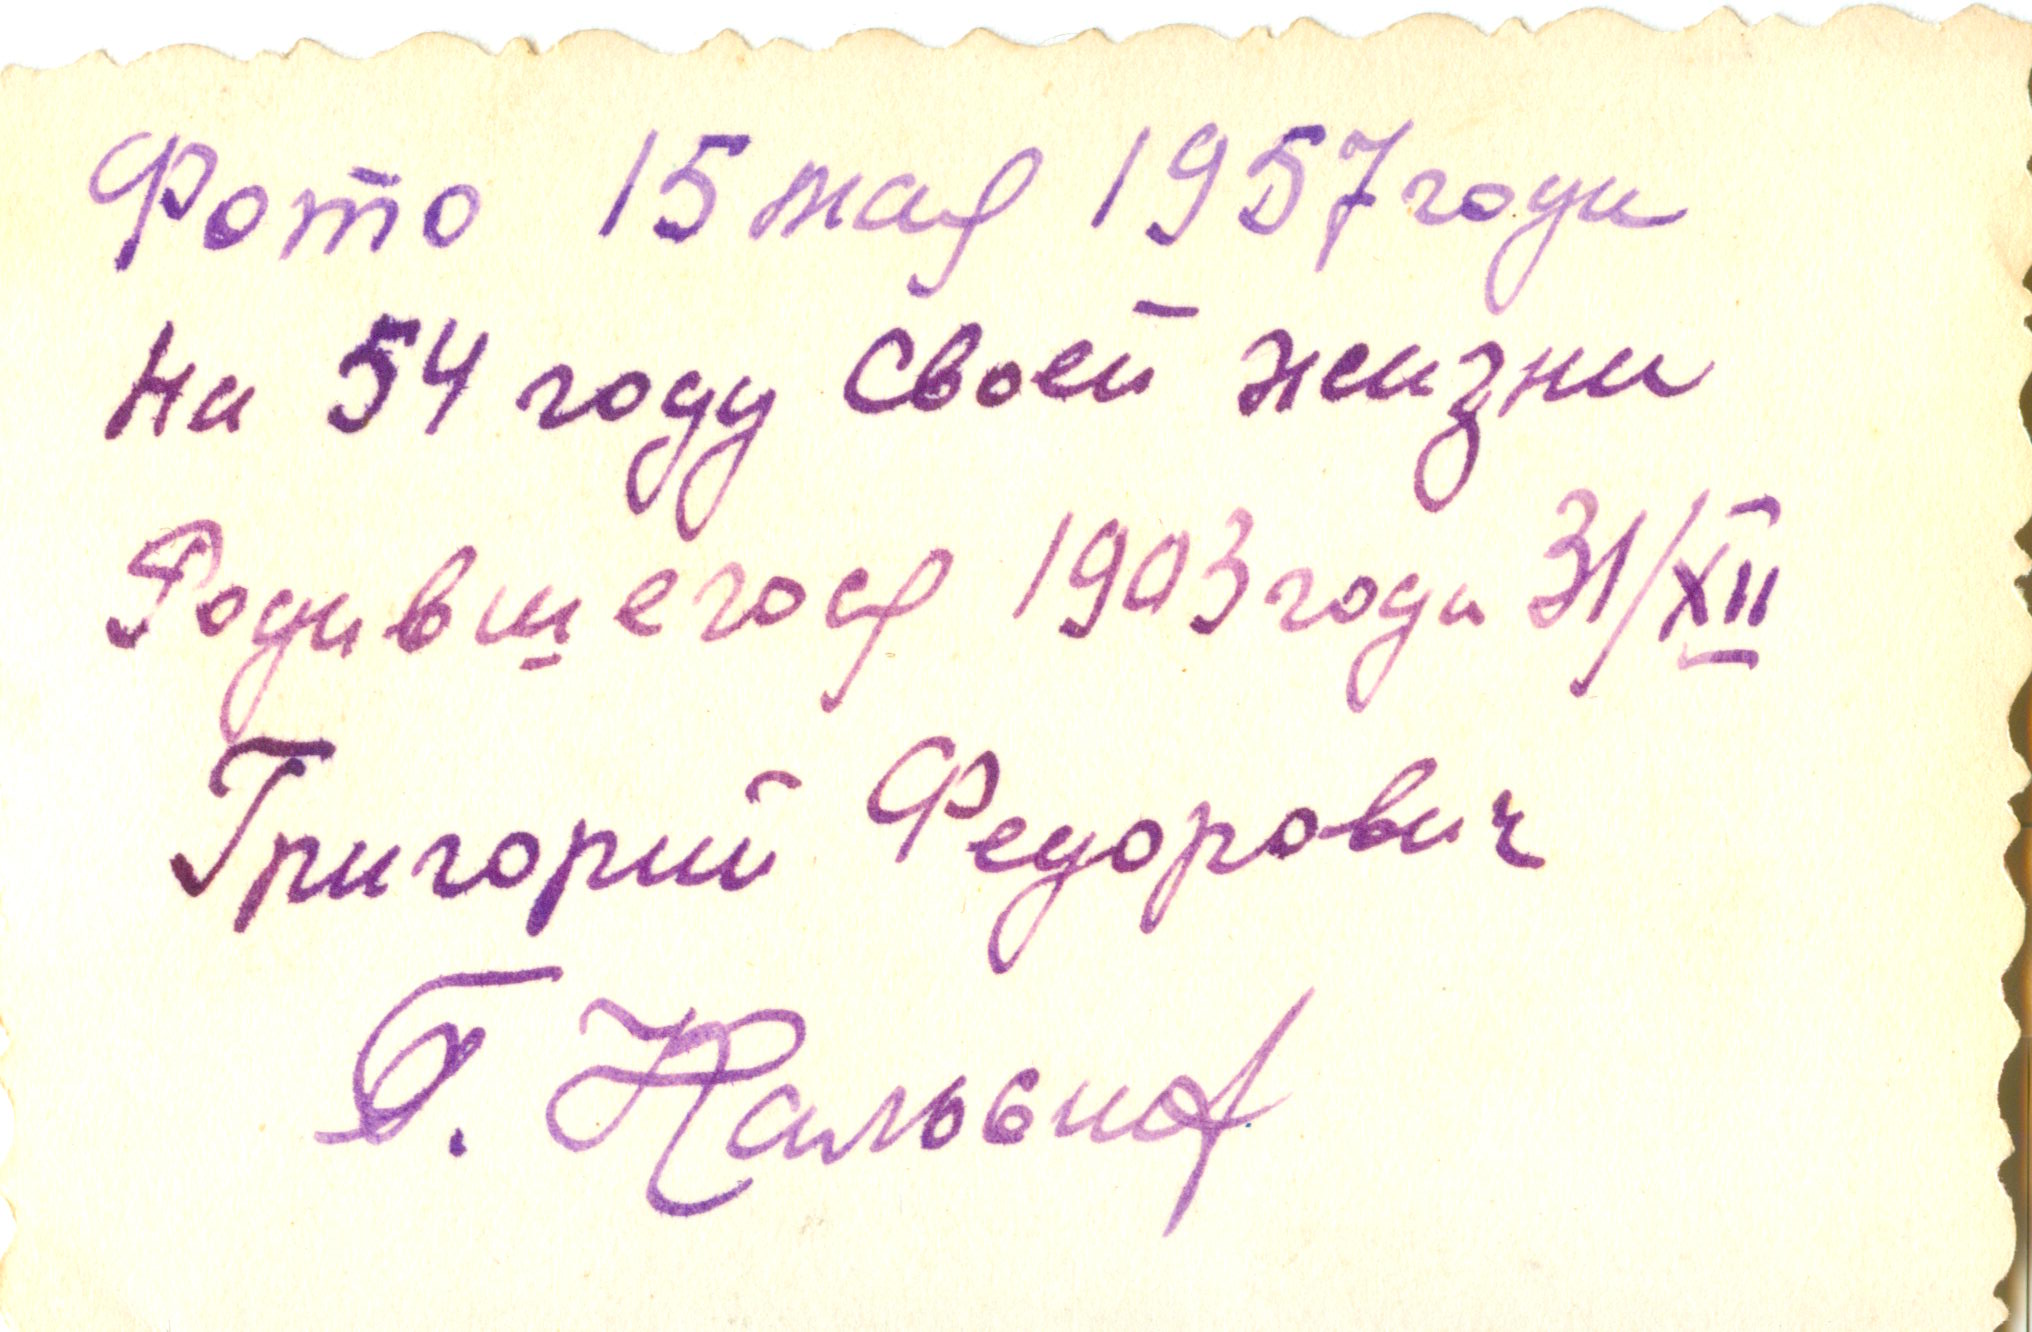 Фото 15 мая 1957 года
на 54 году своей жизни
Родившегося 1903 года 31/XII
Григорий Федорович
Г.